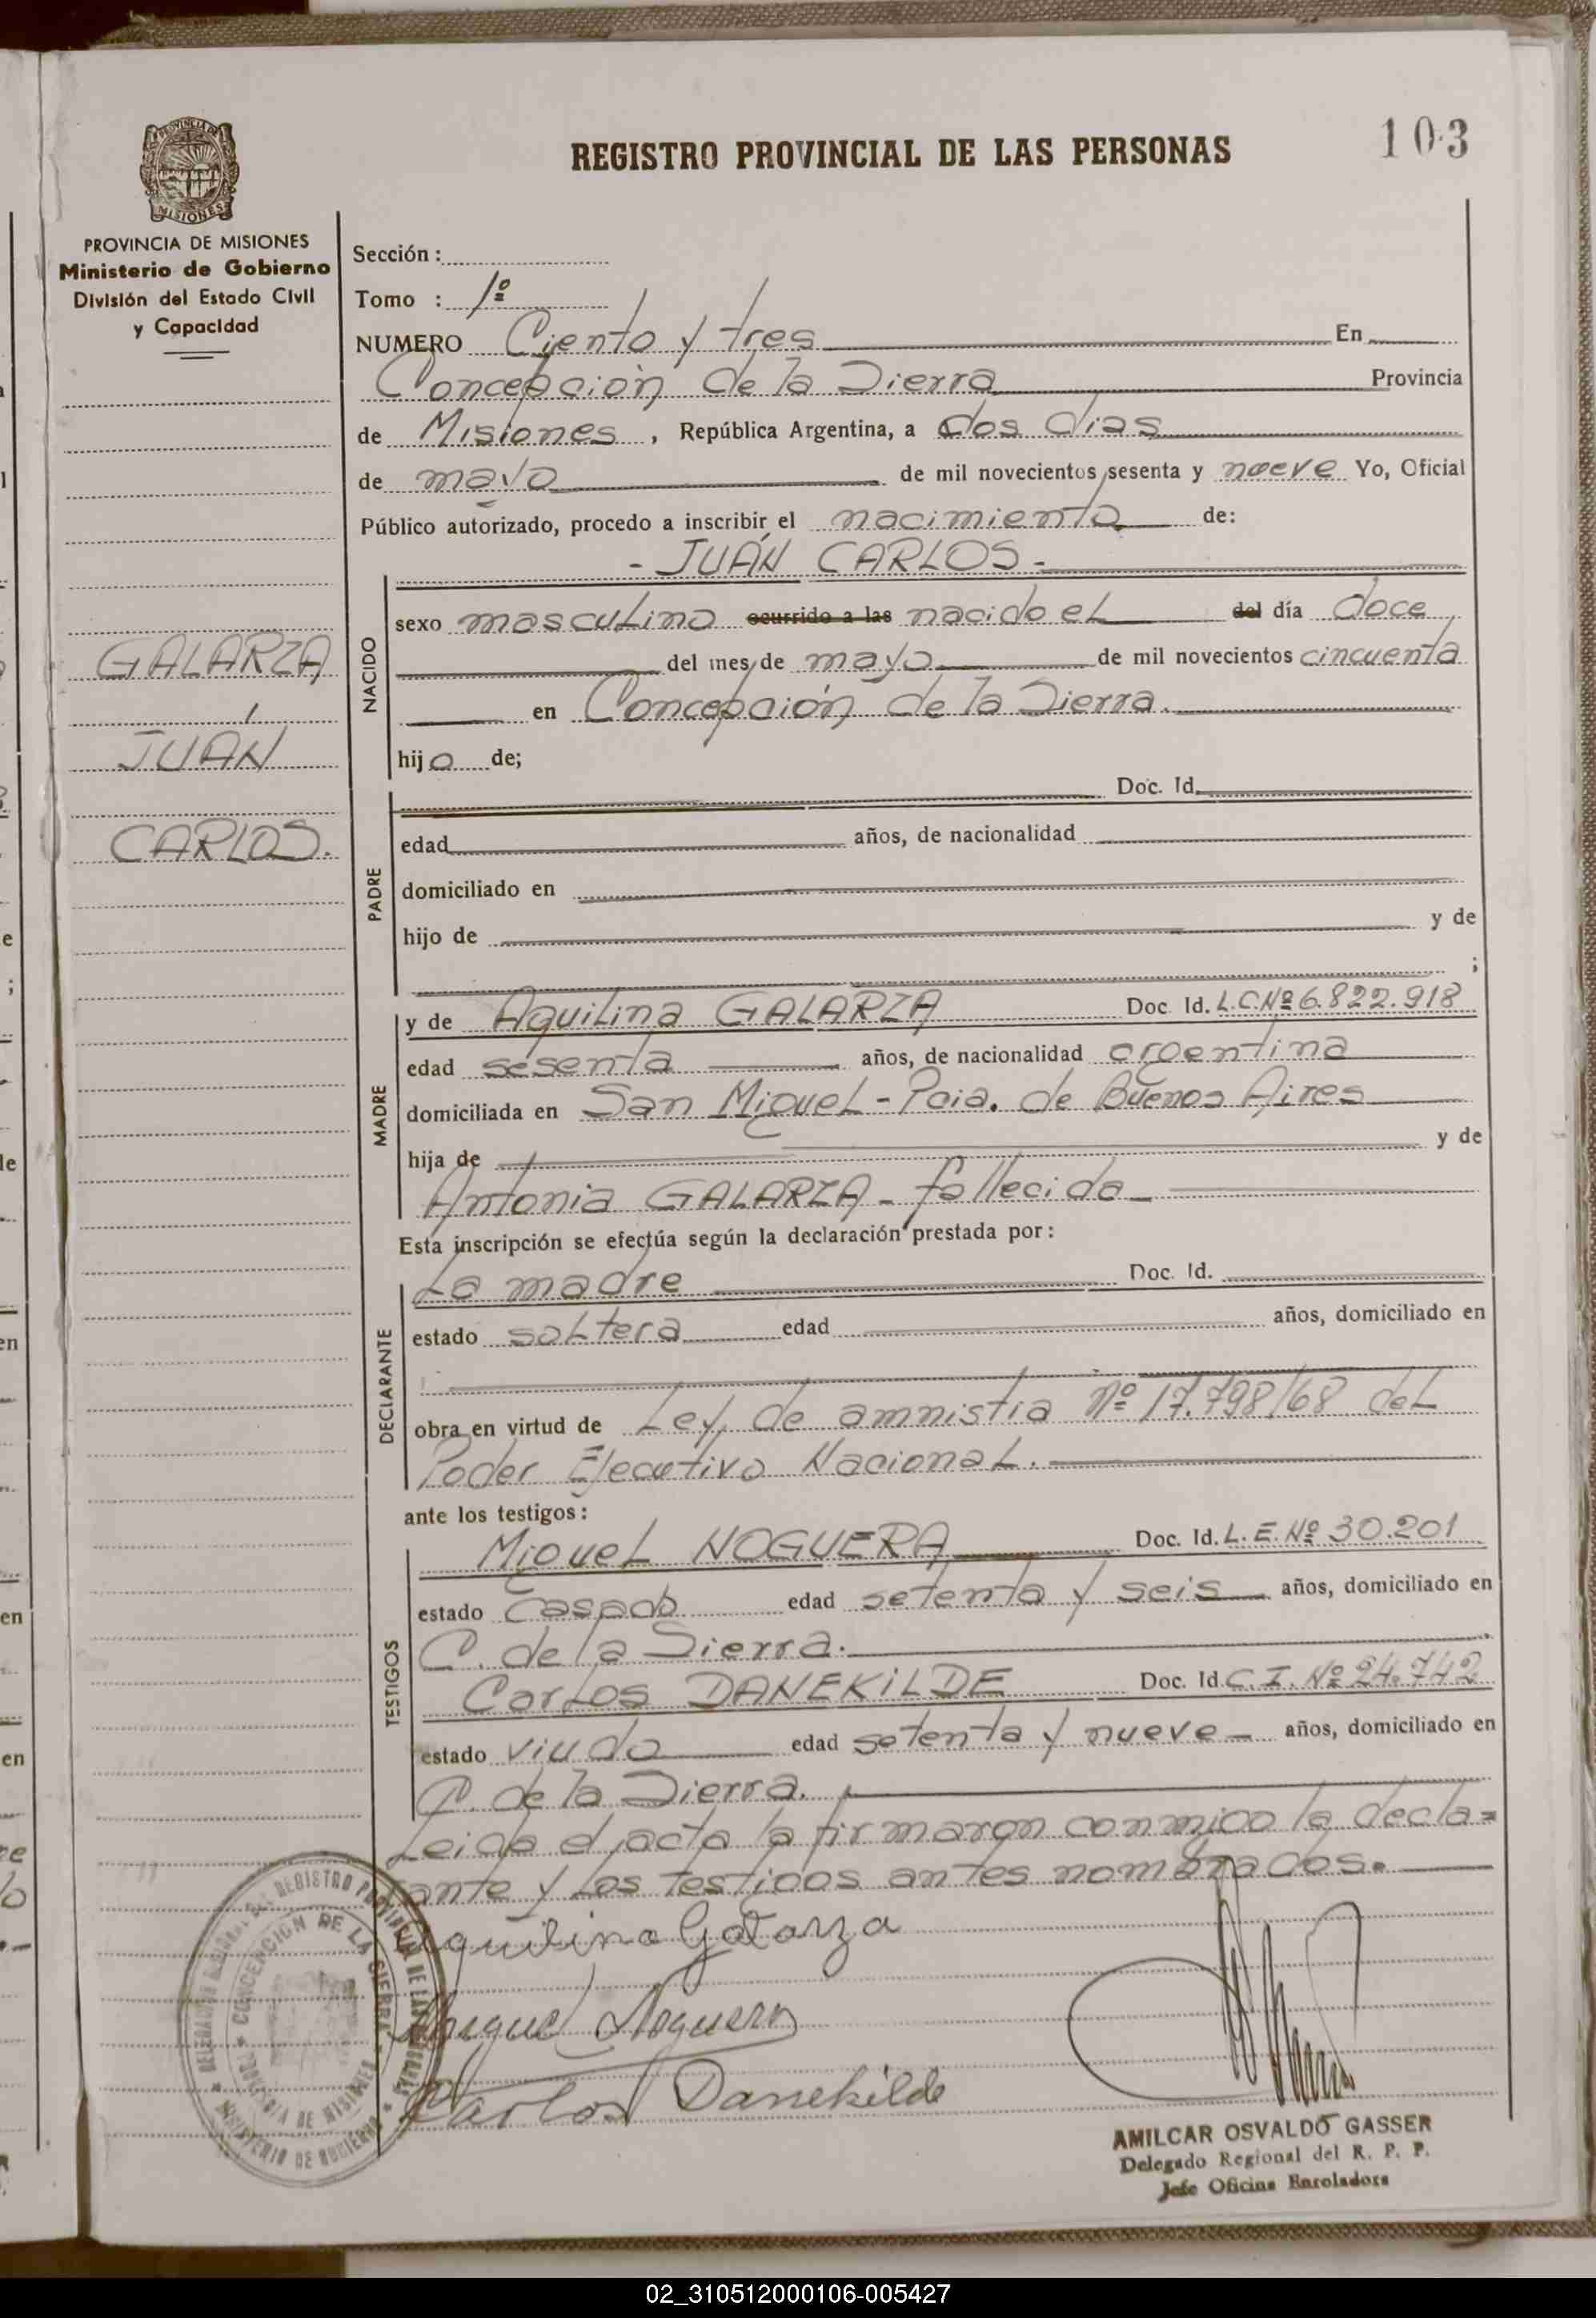 REGISTRO PROVINCIAL DE LAS PERSONAS
103
MISIONES
PROVINCIA DE MISIONES
Ministerio de Gobierno
División del Estado Civil
y Capacidad
GALARZA
JUAN
CARLOS.
Sección :
Tomo : 1º
NUMERO Ciento y tres En
Concepción de la Sierra Provincia
de Misiones , República Argentina, a dos días
de mayo de mil novecientos sesenta y nueve Yo, Oficial
Público autorizado, procedo a inscribir el nacimiento de:
- JUAN CARLOS -
NACIDO
sexo masculino ocurrido a las nacido el del día doce
del mes de mayo de mil novecientos cincuenta
en Concepción de la Sierra.
hijo de;
PADRE
Doc. Id.
edad años, de nacionalidad
domiciliado en
hijo de y de
;
MADRE
y de Aquilina GALARZA Doc. Id. L.C.Nº 6.822.918
edad sesenta años, de nacionalidad argentina
domiciliada en San Miguel - Pcia. de Buenos Aires
hija de y de
Antonia GALARZA - fallecida -
Esta inscripción se efectúa según la declaración prestada por :
DECLARANTE
La madre Doc. Id.
estado soltera edad años, domiciliado en
obra en virtud de Ley de amnistia Nº 17.798/68 del
Poder Ejecutivo Nacional.
ante los testigos :
TESTIGOS
Miguel NOGUERA Doc. Id. L. E. Nº 30.201
estado Casado edad setenta y seis años, domiciliado en
C. de la Sierra.
Carlos DANEKILDE Doc. Id. C. I. Nº 24.742
estado viudo edad setenta y nueve - años, domiciliado en
C. de la Sierra.
Leida el acta la firmaron conmigo la decla=
rante y los testigos antes nombrados.
Aquilina Galarza
Miguel Noguera
Carlos Danekilde
CONCEPCION DE LA SIERRA
PROVINCIA DE MISIONES
MINISTERIO DE GOBIERNO
AMILCAR OSVALDO GASSER
Delegado Regional del R. P. P.
Jefe Oficina Enroladora
02_310512000106-005427